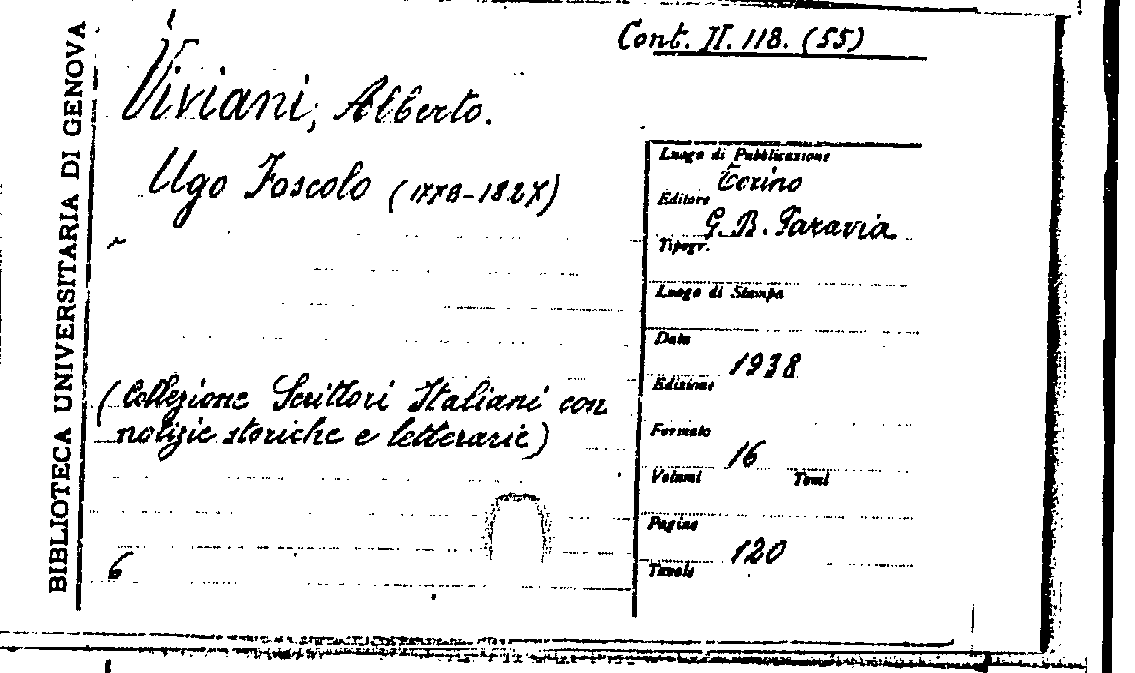 BIBLIOTECA UNIVERSITARIA DI GENOVA
Cont. II. 118. (55)
Viviani, Alberto.
Ugo Foscolo (1778-1827)
(Collezione Scrittori Italiani con
notizie storiche e letterarie)
6
Luogo di Pubblicazione
Torino
Editore
G. B. Paravia
Tipogr.
Luogo di Stampa
Data
1938
Edizione
Formato
16
Volumi Tomi
Pagine
120
Tavole